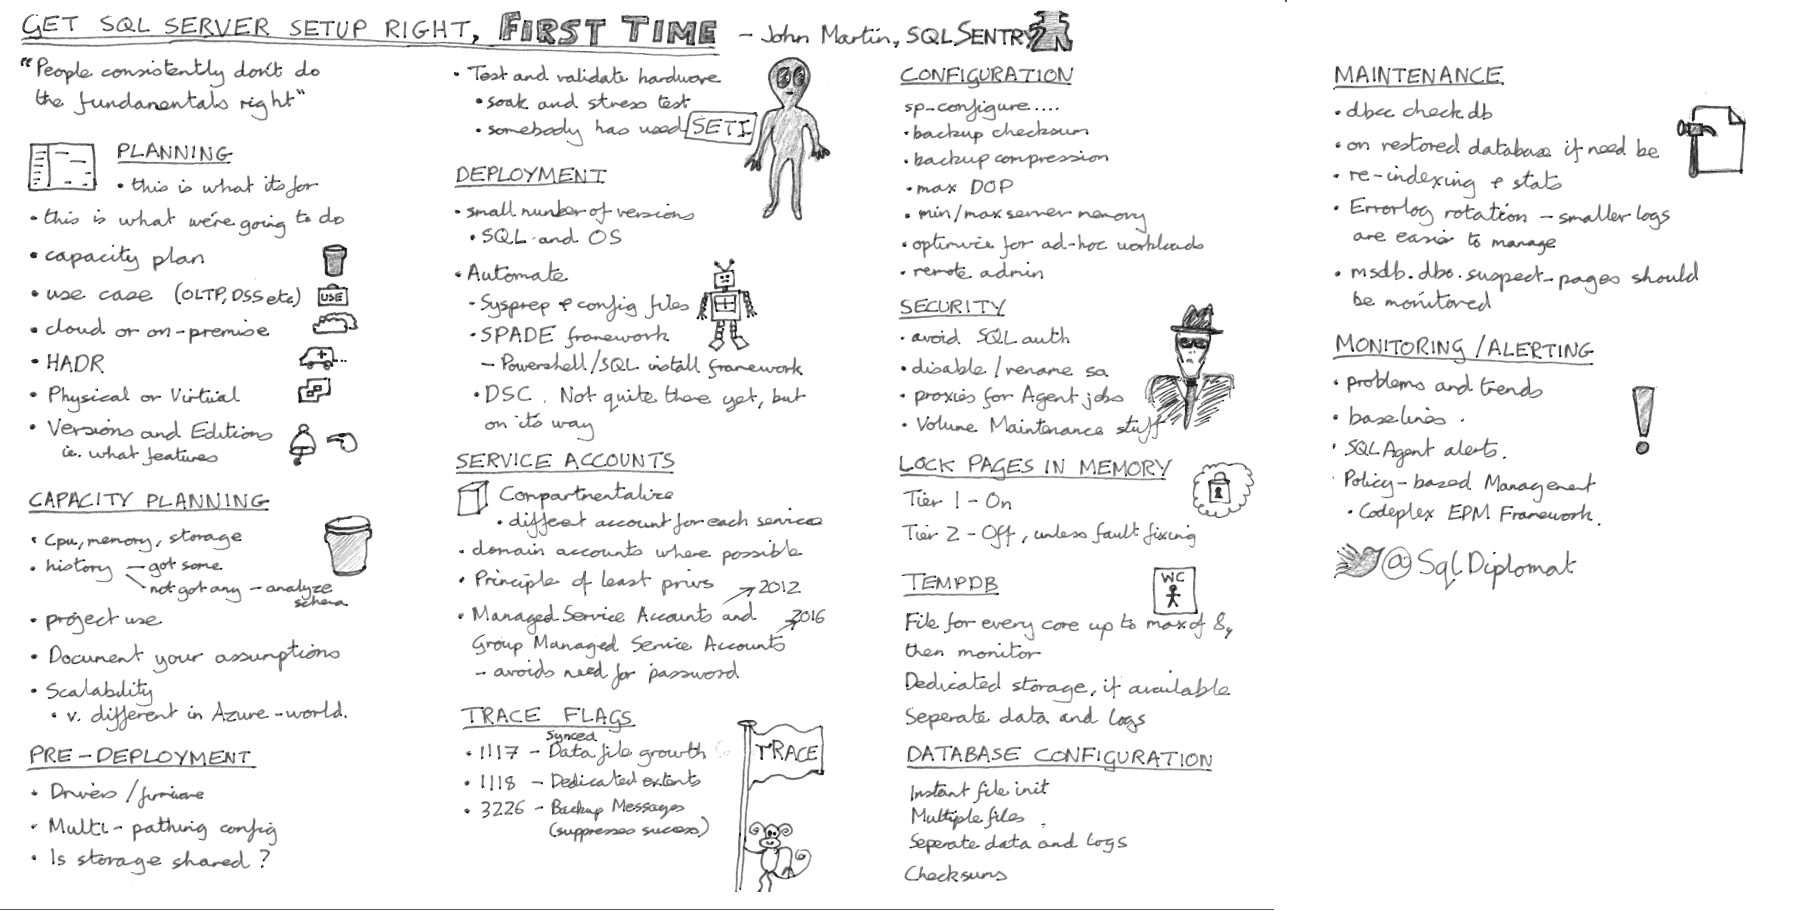 GET SQL SERVER SETUP RIGHT, FIRST TIME - John Martin, SQLSENTRY
"People consistently don't do
the fundamentals right"
PLANNING
• this is what its for
• this is what we're going to do
• capacity plan
• use case (OLTP, DSS etc)
USE
• cloud or on-premise
• HADR
• Physical or Virtual
• Versions and Editions
ie. what features
CAPACITY PLANNING
• cpu, memory, storage
• history - got some
not got any - analyze
schema
• project use
• Document your assumptions
• Scalability
• v. different in Azure-world.
PRE-DEPLOYMENT
• Drivers / firmware
• Multi-pathing config
• Is storage shared?
• Test and validate hardware
• soak and stress test
• somebody has used SETI
DEPLOYMENT
• small number of versions
• SQL and OS
• Automate
- Sysprep & config files
• SPADE framework
- Powershell/SQL install framework
• DSC. Not quite there yet, but
on its way
SERVICE ACCOUNTS
Compartmentalize
• different account for each service
• domain accounts where possible
• Principle of least privs
2012
• Managed Service Accounts and
2016
Group Managed Service Accounts
- avoids need for password
TRACE FLAGS
Synced
• 1117 - Data file growth
• 1118 - Dedicated extents
• 3226 - Backup Messages
(suppresses success)
TRACE
CONFIGURATION
sp-configure....
• backup checksum
• backup compression
• max DOP
• min/max server memory
• optimize for ad-hoc workloads
• remote admin
SECURITY
• avoid SQL auth
• disable / rename sa
• proxies for Agent jobs
• Volume Maintenance stuff
LOCK PAGES IN MEMORY
Tier 1 - On
Tier 2 - Off, unless fault fixing
TEMPDB
WC
File for every core up to max of 8,
then monitor
Dedicated storage, if available
Seperate data and logs
DATABASE CONFIGURATION
Instant file init
Multiple files
Seperate data and logs
Checksums
MAINTENANCE
• dbcc checkdb
• on restored database if need be
• re-indexing & stats
• Errorlog rotation - smaller logs
are easier to manage
• msdb.dbo.suspect-pages should
be monitored
MONITORING /ALERTING
• problems and trends
• baselines.
• SQL Agent alerts.
• Policy-based Management
• Codeplex EPM Framework.
@SqlDiplomat